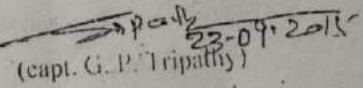 23-09-2015
(capt. G. P. Tripathy)